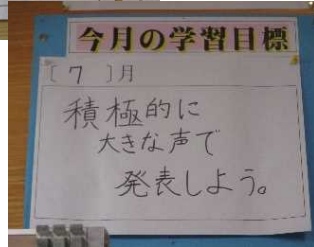 今月の学習目標
〔 7 〕月
積極的に
大きな声で
発表しよう。